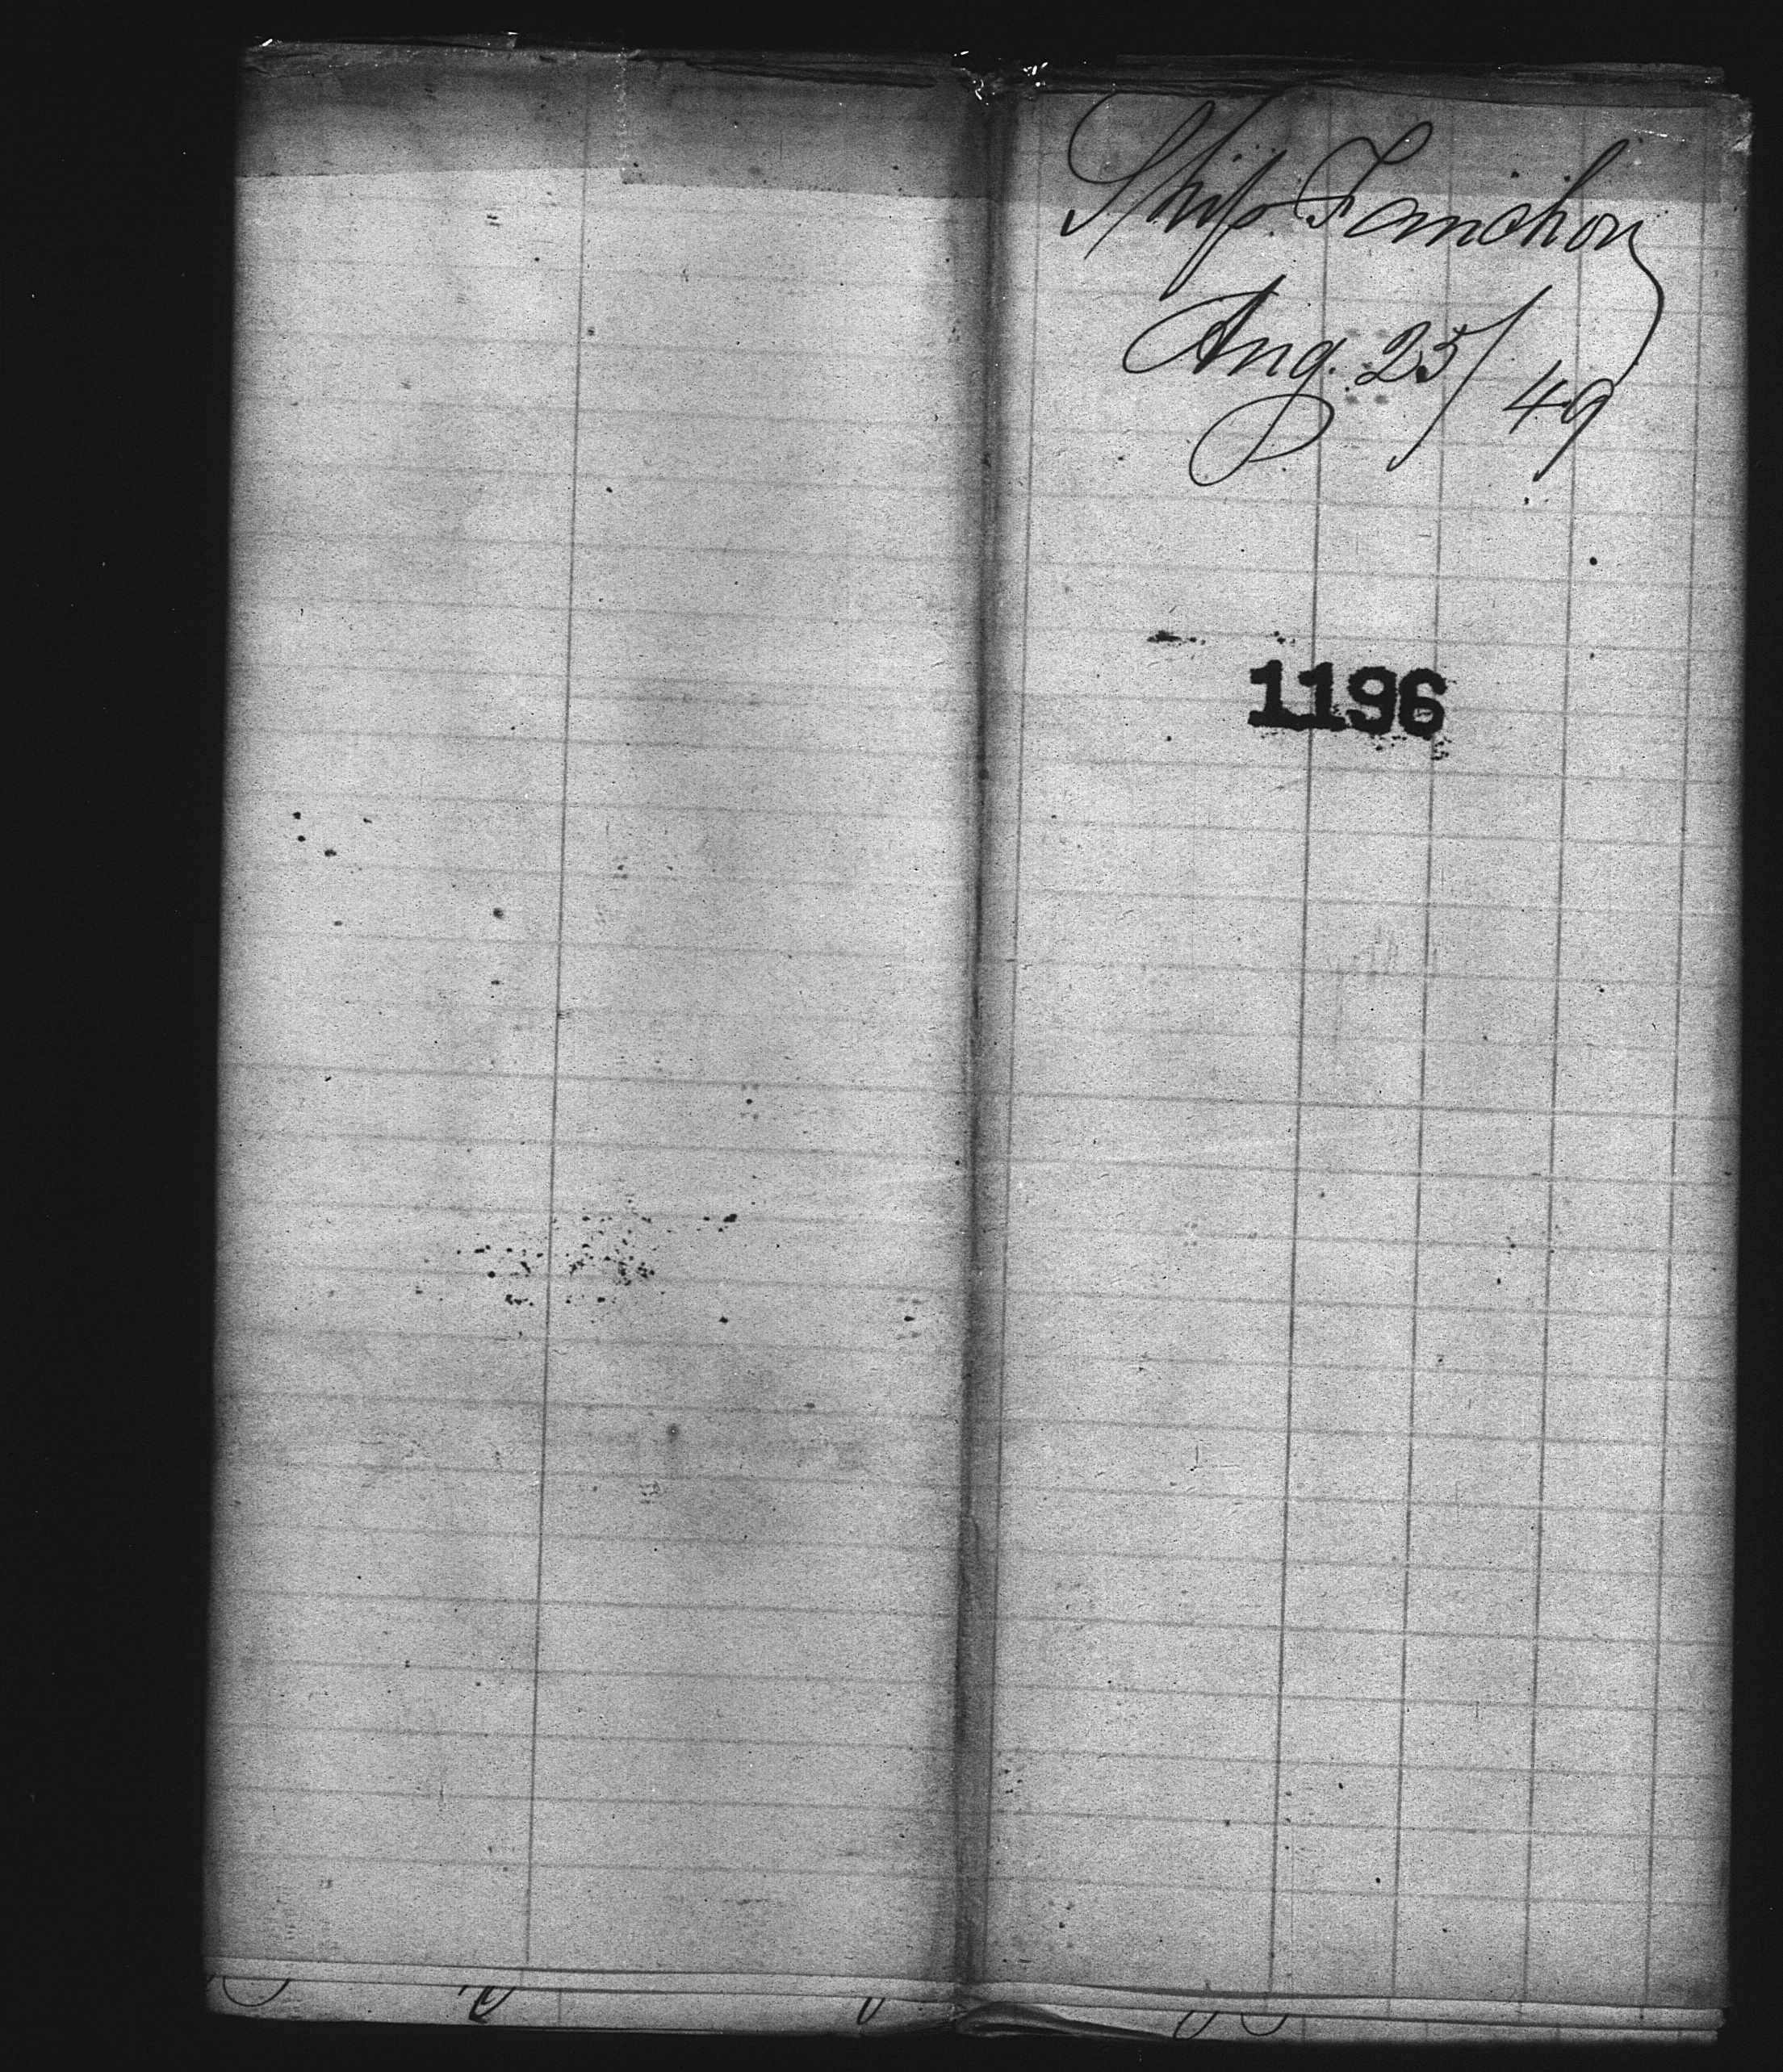 Ship Fanchon
Aug. 25/49
1196